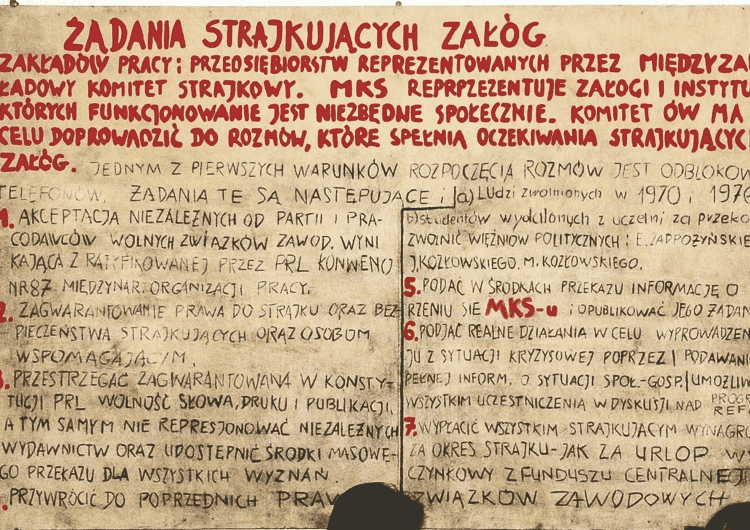 ŻĄDANIA STRAJKUJĄCYCH ZAŁÓG
ZAKŁADÓW PRACY i PRZEDSIĘBIORSTW REPREZENTOWANYCH PRZEZ MIĘDZYZA
ŁADOWY KOMITET STRAJKOWY. MKS REPRPZEZENTUJE ZAŁOGI I INSTYTU
KTÓRYCH FUNKCJONOWANIE JEST NIEZBĘDNE SPOŁECZNIE. KOMITET ÓW MA
CELU DOPROWADZIĆ DO ROZMÓW, KTÓRE SPEŁNIĄ OCZEKIWANIA STRAJKUJĄCYC
ZAŁÓG. JEDNYM Z PIERWSZYCH WARUNKÓW ROZPOCZĘCIA ROZMÓW JEST ODBLOKOW
TELEFONÓW. ŻĄDANIA TE SĄ NASTĘPUJĄCE:
1. AKCEPTACJA NIEZALEŻNYCH OD PARTII I PRA-
CODAWCÓW WOLNYCH ZWIĄZKÓW ZAWOD. WYNI
KAJĄCA Z RATYFIKOWANEJ PRZEZ PRL KONWENCJ
NR 87 MIĘDZYNAR. ORGANIZACJI PRACY.
2. ZAGWARANTOWANIE PRAWA DO STRAJKU ORAZ BEZ
PIECZEŃSTWA STRAJKUJĄCYCH ORAZ OSOBOM
WSPOMAGAJĄCYM.
3. PRZESTRZEGAĆ ZAGWARANTOWANĄ W KONSTY-
TUCJI PRL WOLNOŚĆ SŁOWA, DRUKU I PUBLIKACJI,
A TYM SAMYM NIE REPRESJONOWAĆ NIEZALEŻNYCH
WYDAWNICTW ORAZ UDOSTĘPNIĆ ŚRODKI MASOWE-
GO PRZEKAZU DLA WSZYSTKICH WYZNAŃ.
. PRZYWRÓCIĆ DO POPRZEDNICH PRAW
a) LUDzi zwolnionych w 1970 i 1976
b) studentów wydalonych z uczelni za przeko
ZWOLNIĆ WIĘŹNIÓW POLITYCZNYCH: E. ZADROŻYŃSKIE
J. KOZŁOWSKIEGO. M. KOZŁOWSKIEGO.
5. PODAĆ W ŚRODKACH PRZEKAZU INFORMACJĘ O
RZENIU SIĘ MKS-u i OPUBLIKOWAĆ JEGO ŻĄDAN
6. PODJĄĆ REALNE DZIAŁANIA W CELU WYPROWADZEN
JU Z SYTUACJI KRYZYSOWEJ POPRZEZ PODAWANI
PEŁNEJ INFORM. O SYTUACJI SPOŁ-GOSP. UMOŻLIW
WSZYSTKIM UCZESTNICZENIA W DYSKUSJI NAD PROGR
REF
7. WYPŁACIĆ WSZYSTKIM STRAJKUJĄCYM WYNAGRO
ZA OKRES STRAJKU-JAK ZA URLOP WY
CZYNKOWY Z FUNDUSZU CENTRALNEJ
ZWIĄZKÓW ZAWODOWYCH